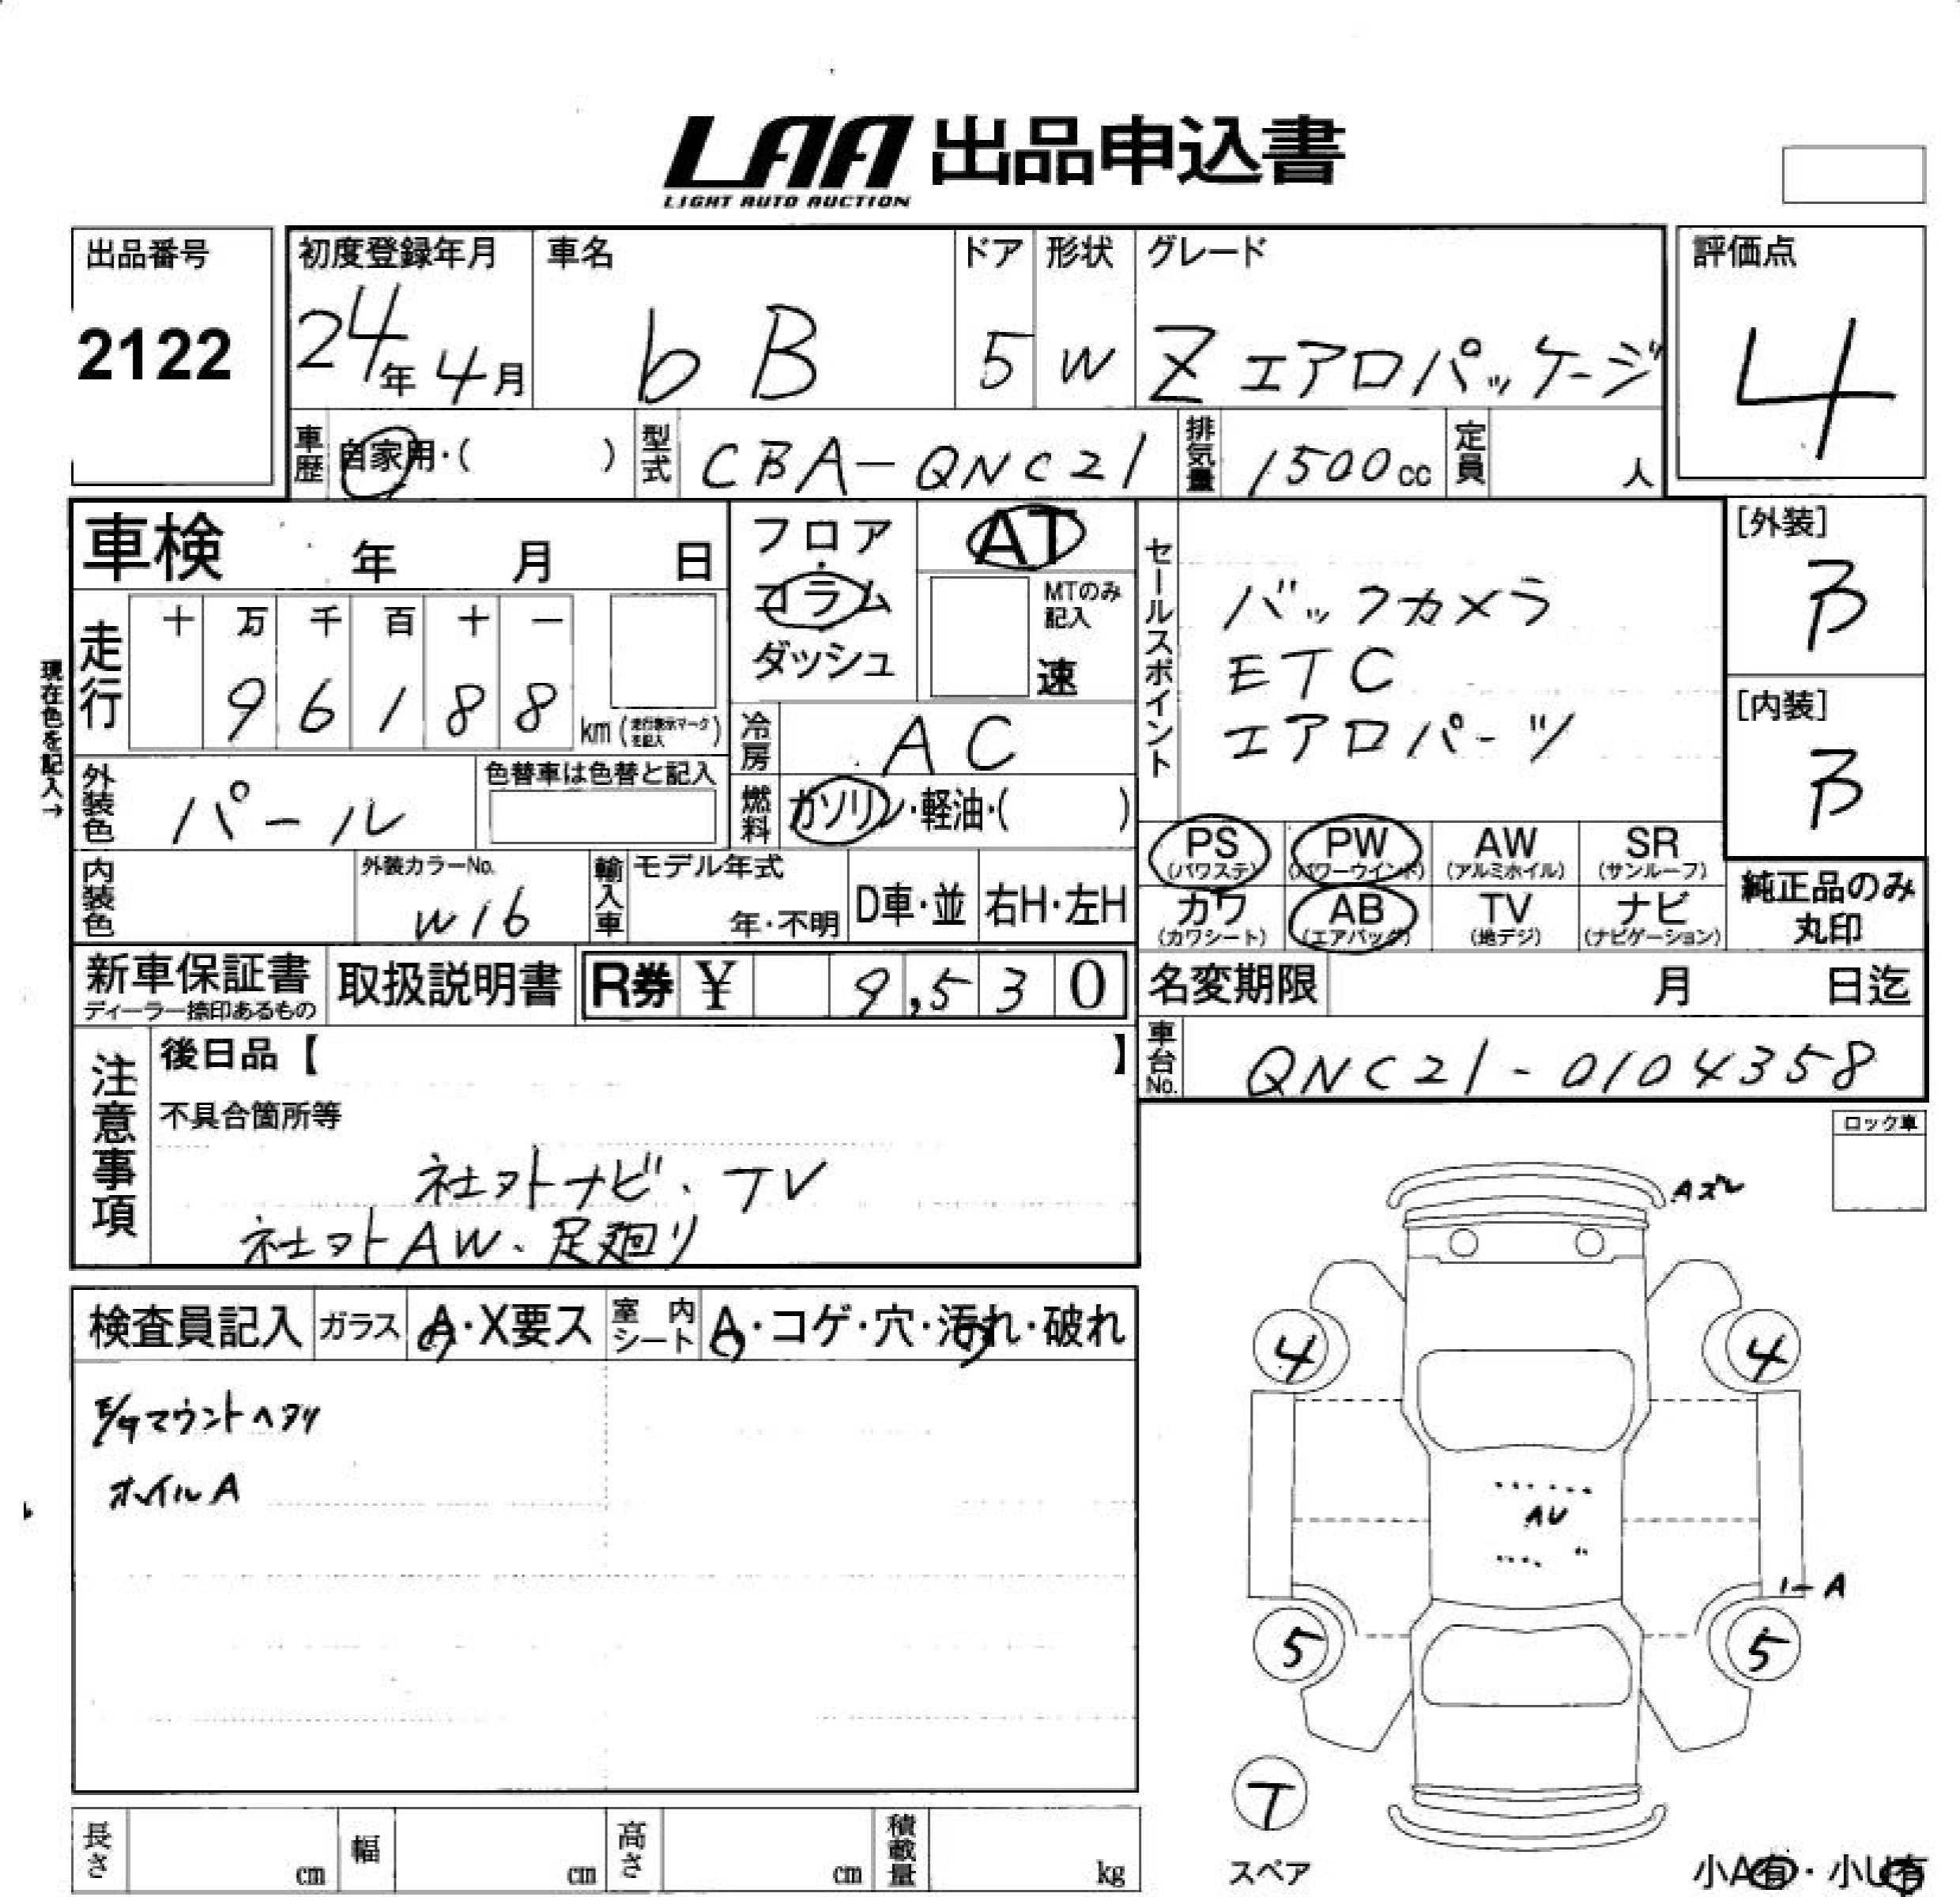 LAA 出品申込書
LIGHT AUTO AUCTION
出品番号
2122
初度登録年月
24年 4月
車名
bB
ドア
5
形状
W
グレード
Z エアロパッケージ
評価点
4
車歴 自家用・( )
型式 CBA-QNC21
排気量 1500cc
定員 人
車検 年 月 日
フロア
コラム
ダッシュ
AT
MTのみ
記入
速
セールスポイント
バックカメラ
ETC
エアロパーツ
[外装]
B
[内装]
B
現在色を記入→
走行
十 万 千 百 十 一
9 6 1 8 8
km (走行表示マークを記入)
冷房 AC
外装色 パール
色替車は色替と記入
燃料 ガソリン・軽油・( )
PS
(パワステ)
PW
(パワーウインド)
AW
(アルミホイル)
SR
(サンルーフ)
カワ
(カワシート)
AB
(エアバッグ)
TV
(地デジ)
ナビ
(ナビゲーション)
純正品のみ
丸印
内装色
外装カラーNo.
W16
輸入車
モデル年式
年・不明
D車・並
右H・左H
新車保証書
ディーラー捺印あるもの
取扱説明書
R券 ¥ 9,530
名変期限 月 日迄
車台No. QNC21-0104358
注意事項
後日品【 】
不具合箇所等
社外ナビ、TV
社外AW、足廻り
ロック車
検査員記入
ガラス A・X要ス
室内シート A・コゲ・穴・汚れ・破れ
E/gマウントヘタリ
ホイルA
Aズレ
4
4
AU
リーA
5
5
T
スペア
小A有・小U有
長さ cm
幅 cm
高さ cm
積載量 kg